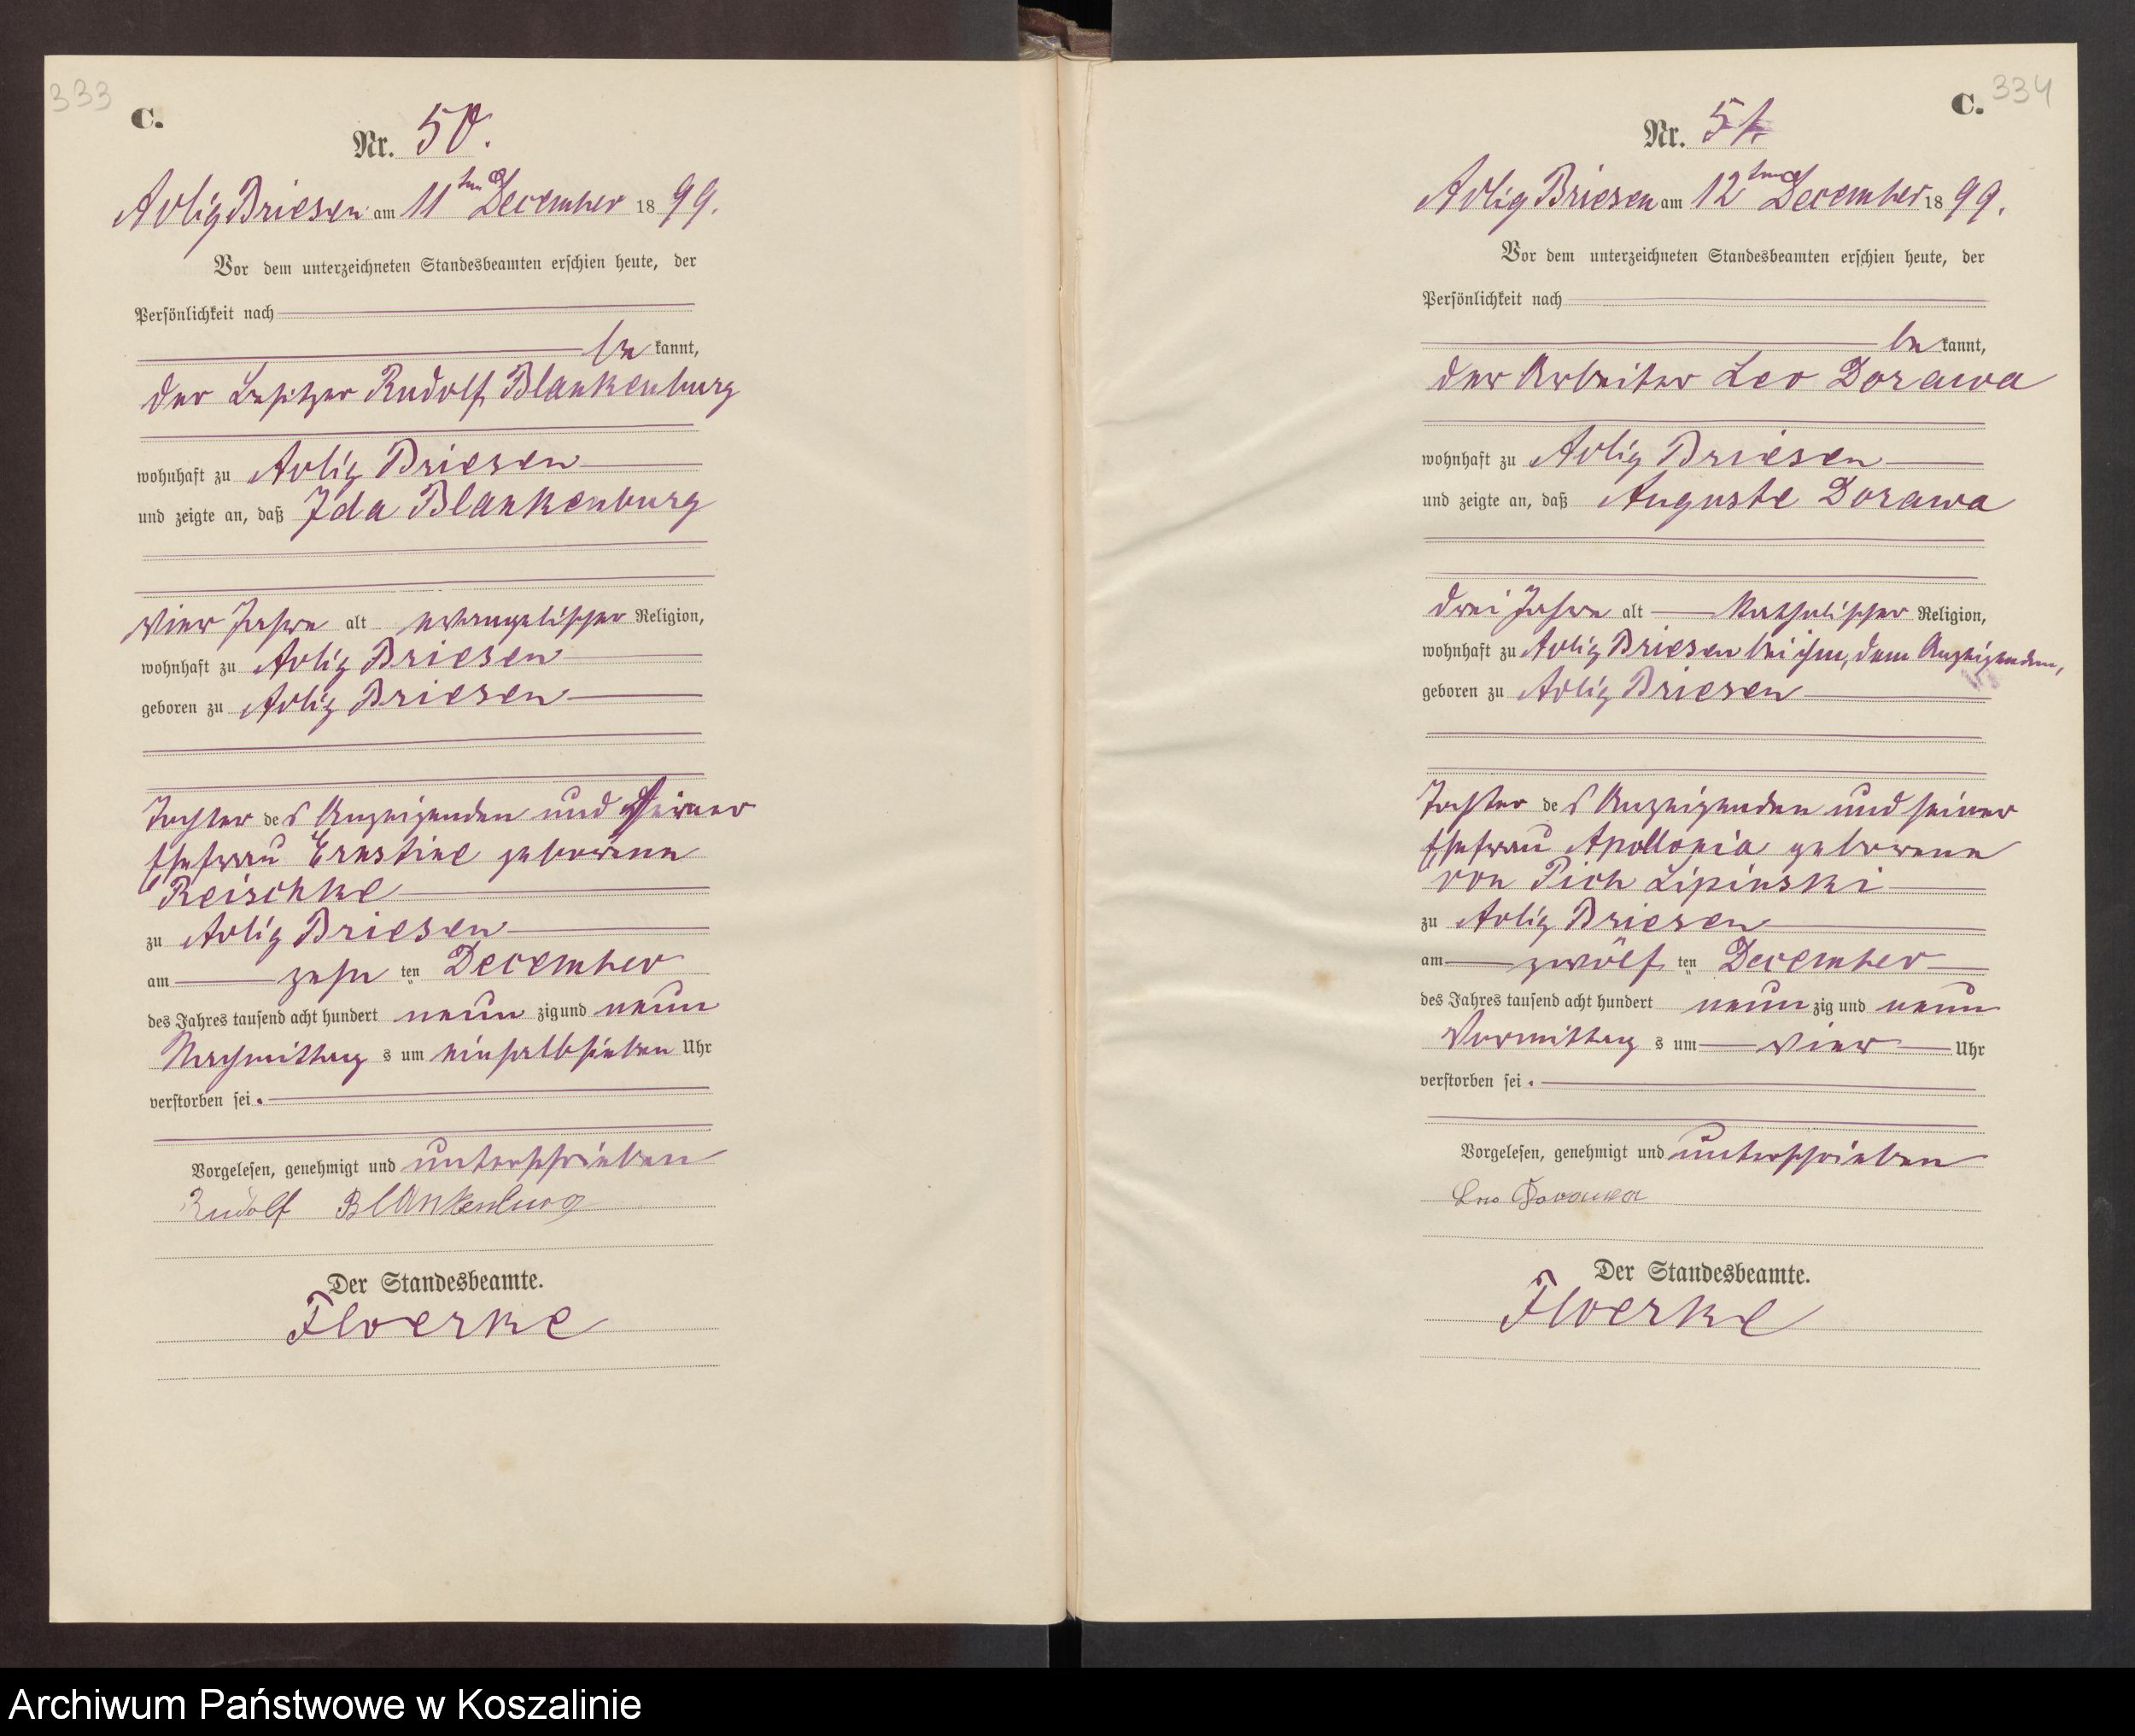 333
C.
Nr. 50.
Adlig Briesen am 11ten December 1899.
Vor dem unterzeichneten Standesbeamten erschien heute, der
Persönlichkeit nach
be kannt,
der Besitzer Rudolf Blankenburg
wohnhaft zu Adlig Briesen
und zeigte an, daß Ida Blankenburg
vier Jahre alt evangelischer Religion,
wohnhaft zu Adlig Briesen
geboren zu Adlig Briesen
Tochter des Anzeigenden und seiner
Ehefrau Ernstine geborene
Reischke
zu Adlig Briesen
am zehn ten December
des Jahres tausend acht hundert neun zig und neun
Nachmittag s um einhalbsieben Uhr
verstorben sei.
Vorgelesen, genehmigt und unterschrieben
Rudolf Blankenburg
Der Standesbeamte.
Floerke
334
C.
Nr. 51.
Adlig Briesen am 12ten December 1899.
Vor dem unterzeichneten Standesbeamten erschien heute, der
Persönlichkeit nach
be kannt,
der Arbeiter Leo Dorawa
wohnhaft zu Adlig Briesen
und zeigte an, daß Auguste Dorawa
drei Jahre alt katholischer Religion,
wohnhaft zu Adlig Briesen bei ihm, dem Anzeigenden,
geboren zu Adlig Briesen
Tochter des Anzeigenden und seiner
Ehefrau Apollonia geborene
von Pich Lipinski
zu Adlig Briesen
am zwölf ten December
des Jahres tausend acht hundert neun zig und neun
Vormittag s um vier Uhr
verstorben sei.
Vorgelesen, genehmigt und unterschrieben
Leo Dorawa
Der Standesbeamte.
Floerke
Archiwum Państwowe w Koszalinie